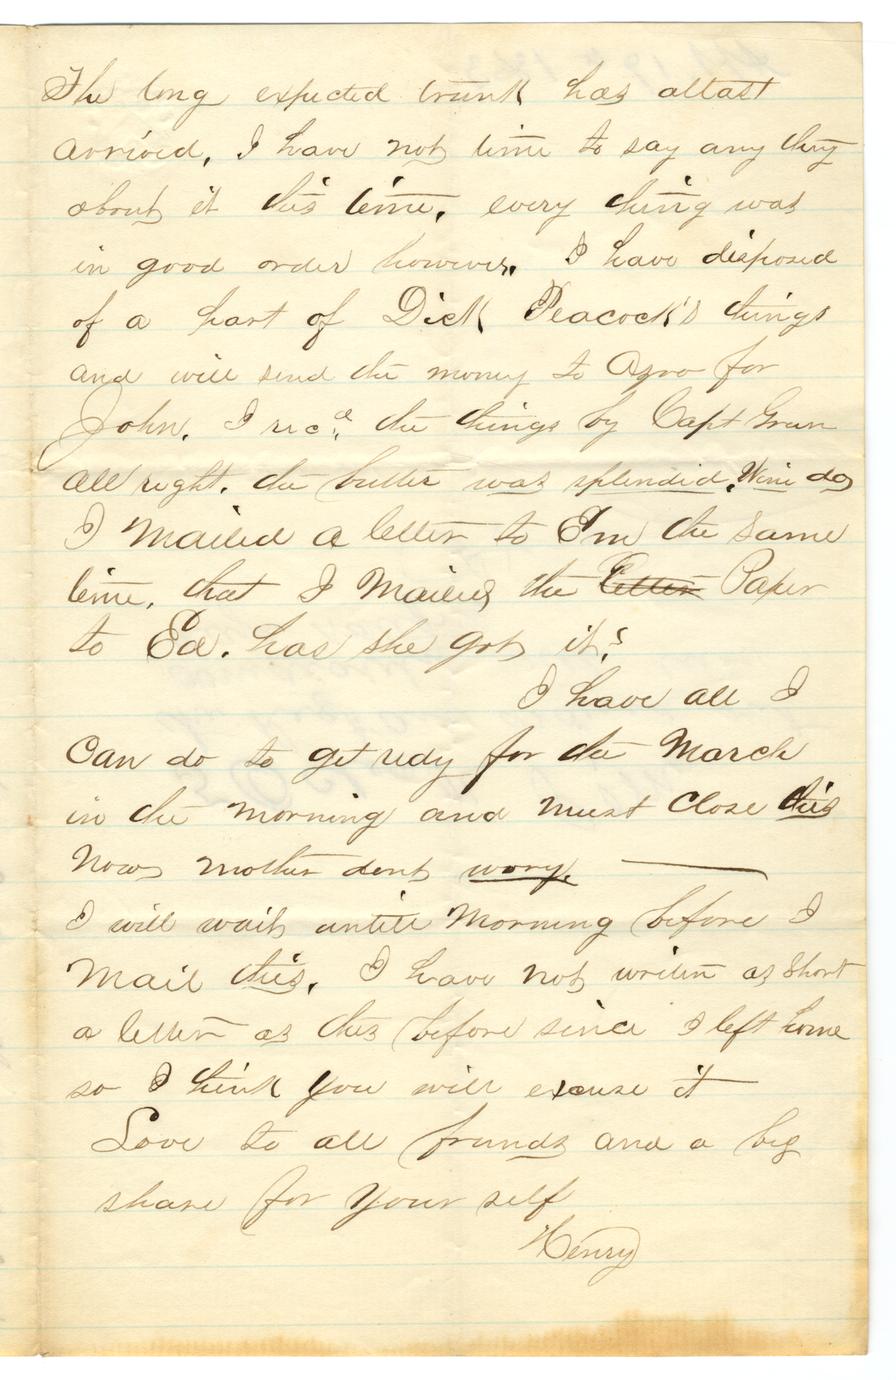 The long expected trunk has attast
arrived, I have not time to say any thing
about it this time, every thing was
in good order however. I have disposed
of a part of Dick Peacock's things
and will send the money to for
John. I recd. the things by Capt Green
all right. the butter was splendid, Wine do
I Mailed a letter to Em the same
time, that I Mailed the letter Paper
to Ed. has she got it?
I have all I
Can do to get redy for the March
in the morning and must Close this
Now mother dont wory.
I will wait untill Morning before I
Mail this. I have not writen as Short
a letter as this before since I left home
so I think you will excuse it
Love to all friends and a big
share for your self
Henry